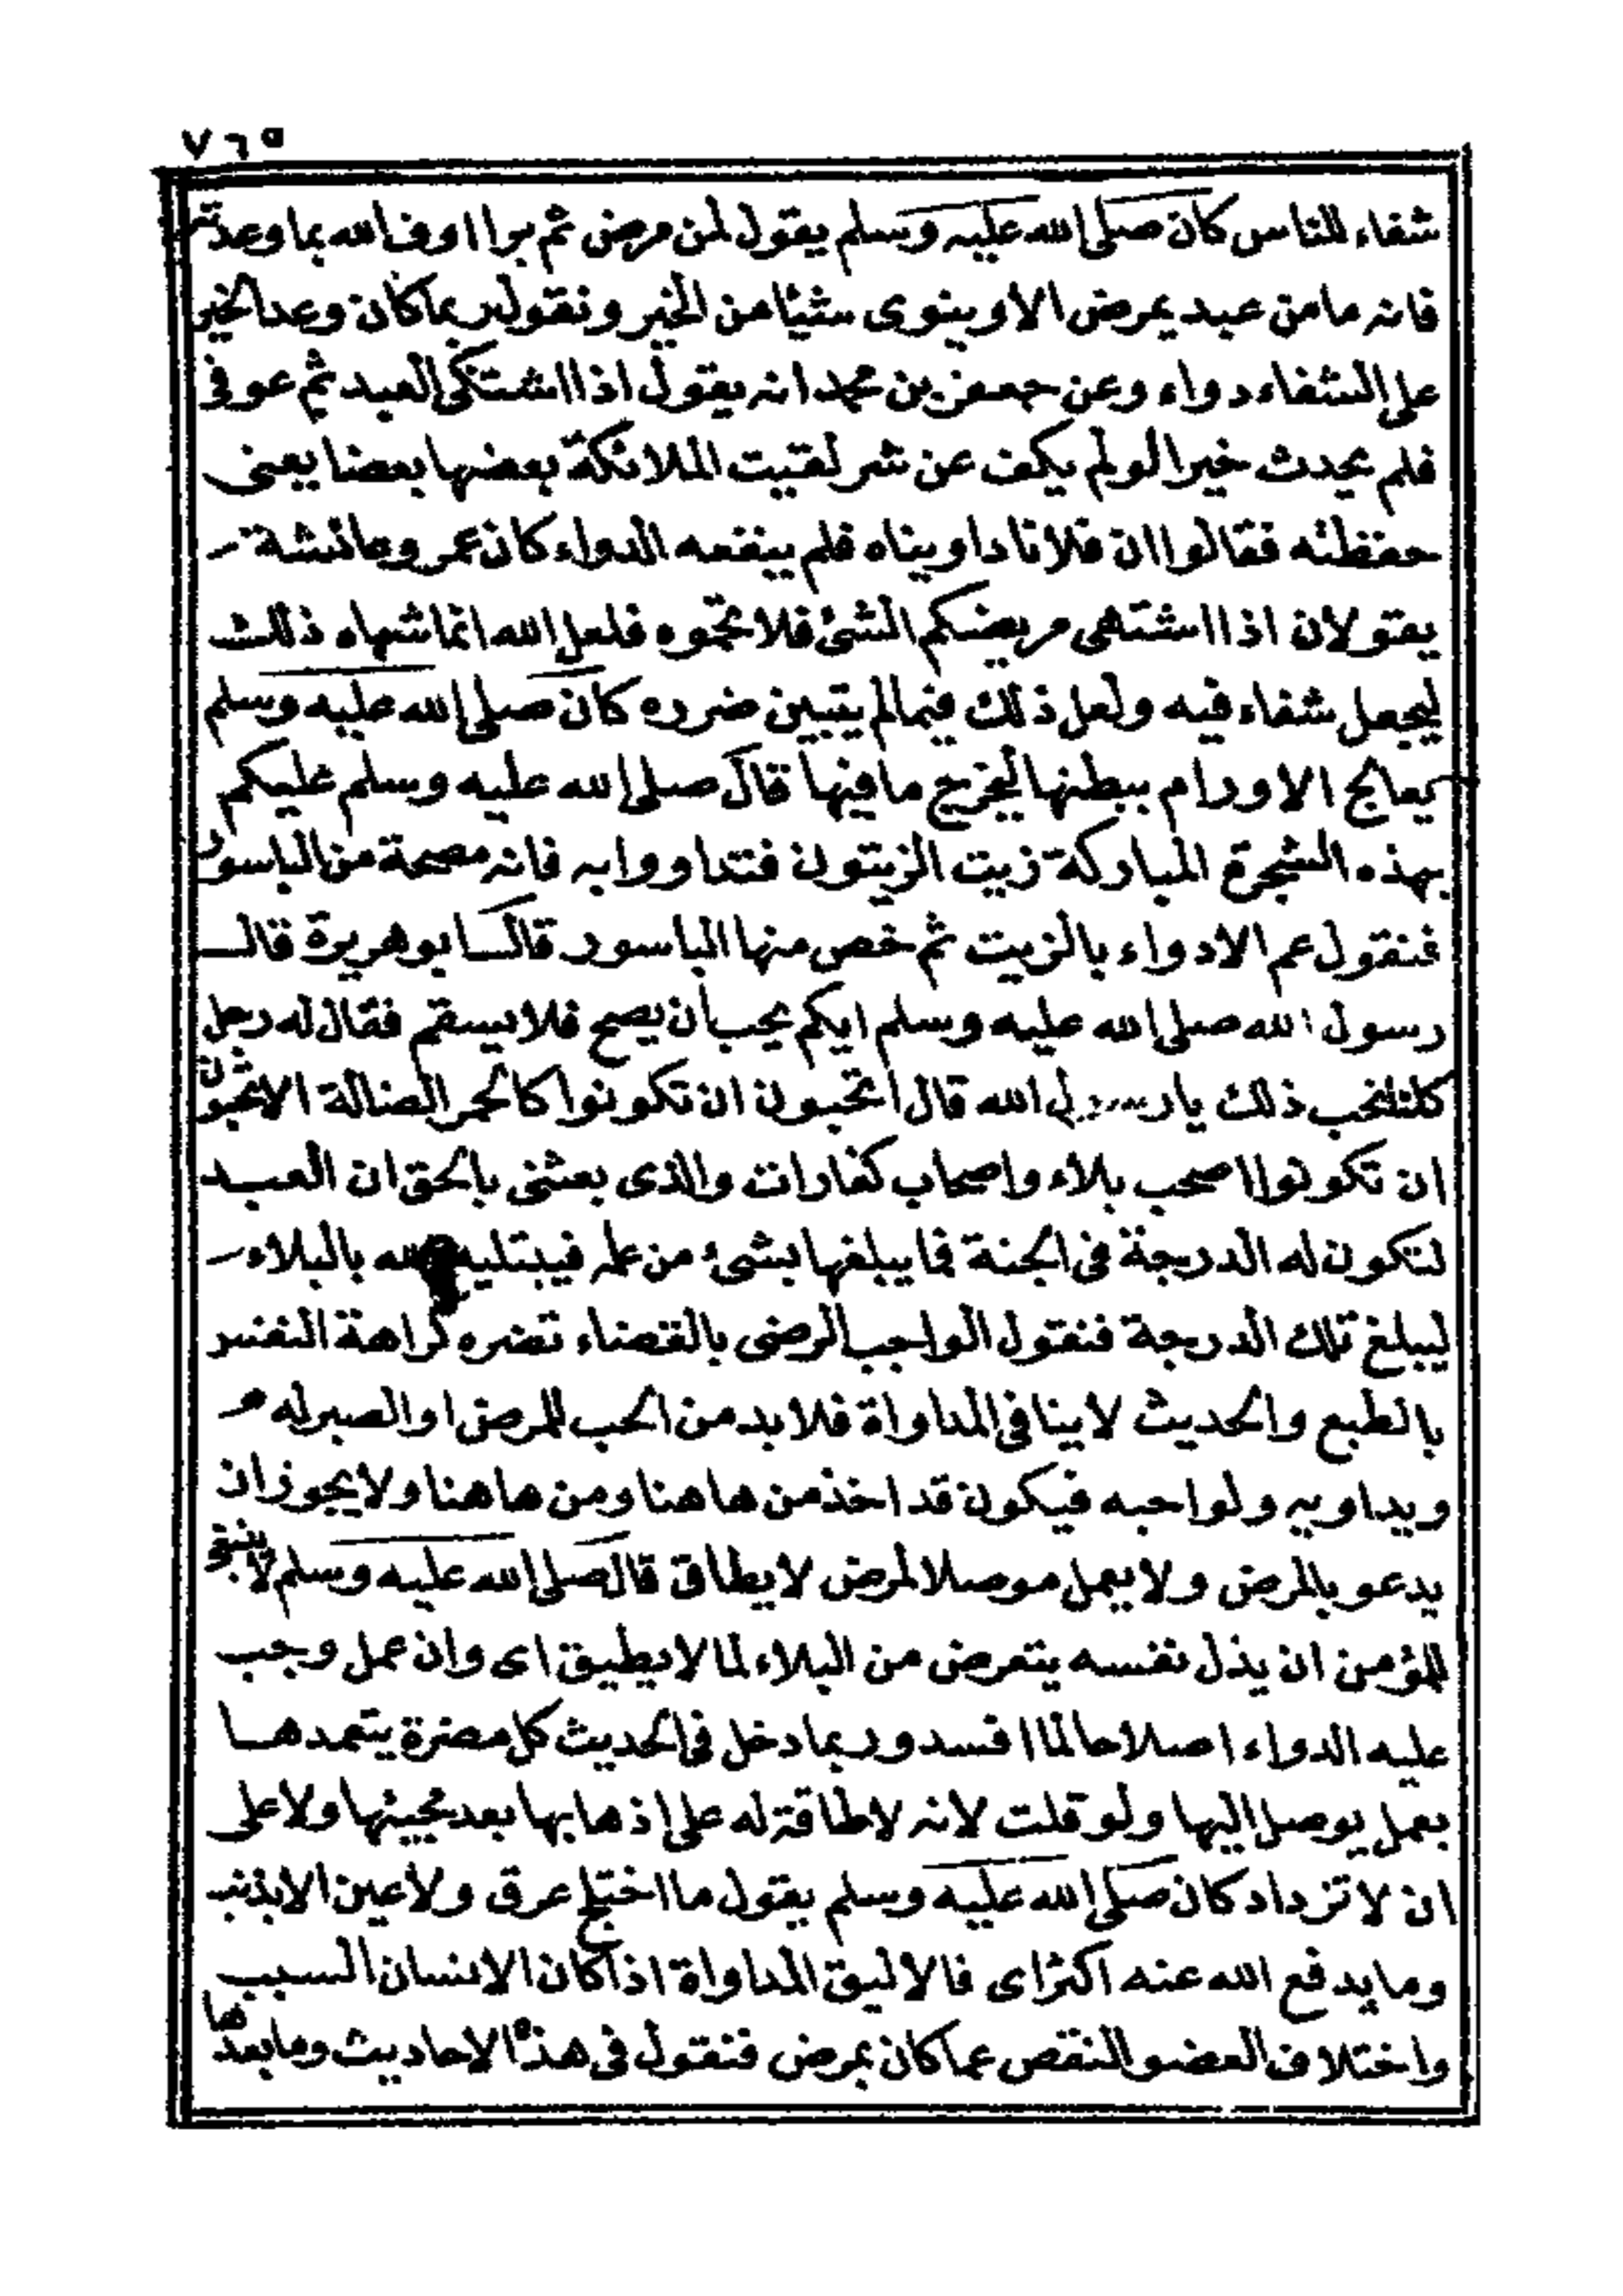 ٧٦٥
شفاء للناس كان صلى الله عليه وسلم يقول لمن مرض ثم برا اوف الله بما وعدته
فانه ما من عبد يمرض الا وينوى شيئا من الخير ونقول ربما كان وعد الخير
على الشفاء دواء وعن جعفر بن محمد انه يقول اذا اشتكى العبد ثم عوفى
فلم يحدث خيرا لو لم يكف عن شر لقيت الملائكة بعضها بعضا يعنى
حفظته فقالوا ان فلانا داويناه فلم ينفعه الدواء كان عمر وعائشة
يقولان اذا اشتهى مريضكم الشئ فلا تحموه فلعل الله انما شهاه ذلك
ليجعل شفاء فيه ولعل ذلك فيما لم يتبين ضرره كان صلى الله عليه وسلم
يعالج الاورام ببطنها ليخرج ما فيها قال صلى الله عليه وسلم عليكم
بهذه الشجرة المباركة زيت الزيتون فتداووا به فانه مصحة من الباسور
فنقول عم الادواء بالزيت ثم خص منها الباسور قال ابو هريرة قال
رسول الله صلى الله عليه وسلم ايكم يحب أن يصح فلا يسقم فقال له رجل
كلنا نحب ذلك يا رسول الله قال اتحبون ان تكونوا كالحمر الضالة الا تحبون
ان تكونوا اصحب بلاء واصحاب كفارات والذى بعثنى بالحق ان العبد
لتكون له الدرجة فى الجنة فما يبلغها بشئ من عمله فيبتليه الله بالبلاء
ليبلغ تلك الدرجة فنقول الواجب الرضى بالقضاء تضره كراهة النفس
بالطبع والحديث لا ينافى المداواة فلا بد من الحب للمرض او الصبر له
ويداويه ولو احبه فيكون قد اخذ من هاهنا ومن هاهنا ولا يجوز ان
يدعو بالمرض ولا يعمل موصلا لمرض لا يطاق قال صلى الله عليه وسلم لا ينبغى
للمؤمن ان يذل نفسه يتعرض من البلاء لما لا يطيق اى وان عمل وجب
عليه الدواء اصلاحا لما افسد وربما دخل فى الحديث كل مضرة يتعمدها
بعمل يوصل اليها ولو قلت لانه لا طاقة له على اذهابها بعد مجيئها ولا على
ان لا تزداد كان صلى الله عليه وسلم يقول ما اختلج عرق ولا عين الا بذنب
وما يدفع الله عنه اكثر اى فالاليق المداواة اذا كان الانسان السبب
واختلاف العضو النقص عما كان بمرض فنقول فى هذا الاحاديث وما بعدها